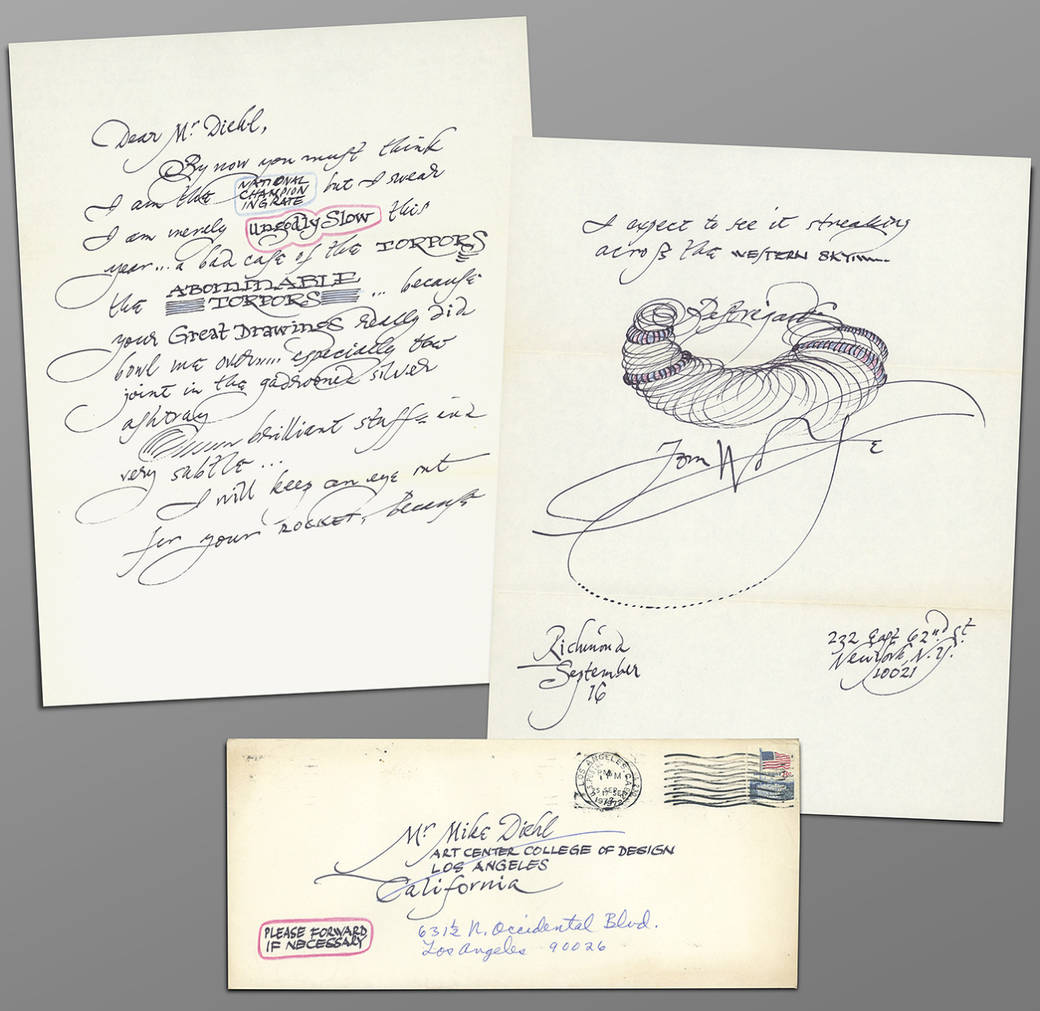 Dear Mr Diehl,
By now you must think
I am the NATIONAL CHAMPION INGRATE but I swear
I am merely Ungodly Slow this
year... a bad case of the TORPORS
the ABOMINABLE TORPORS ... because
your Great Drawings really did
bowl me over.... especially
joint in the gadrooned silver
ashtray
brilliant stuff and
very subtle...
I will keep an eye out
for your ROCKET, because
I expect to see it streaking
across the WESTERN SKY.....
Tom Wolfe
Richmond
September
16
232 East 62nd St.
New York, N.Y.
10021
LOS ANGELES, CA
PM
SEP
Mr Mike Diehl
ART CENTER COLLEGE OF DESIGN
LOS ANGELES
California
PLEASE FORWARD
IF NECESSARY
631½ N. Occidental Blvd.
Los Angeles 90026